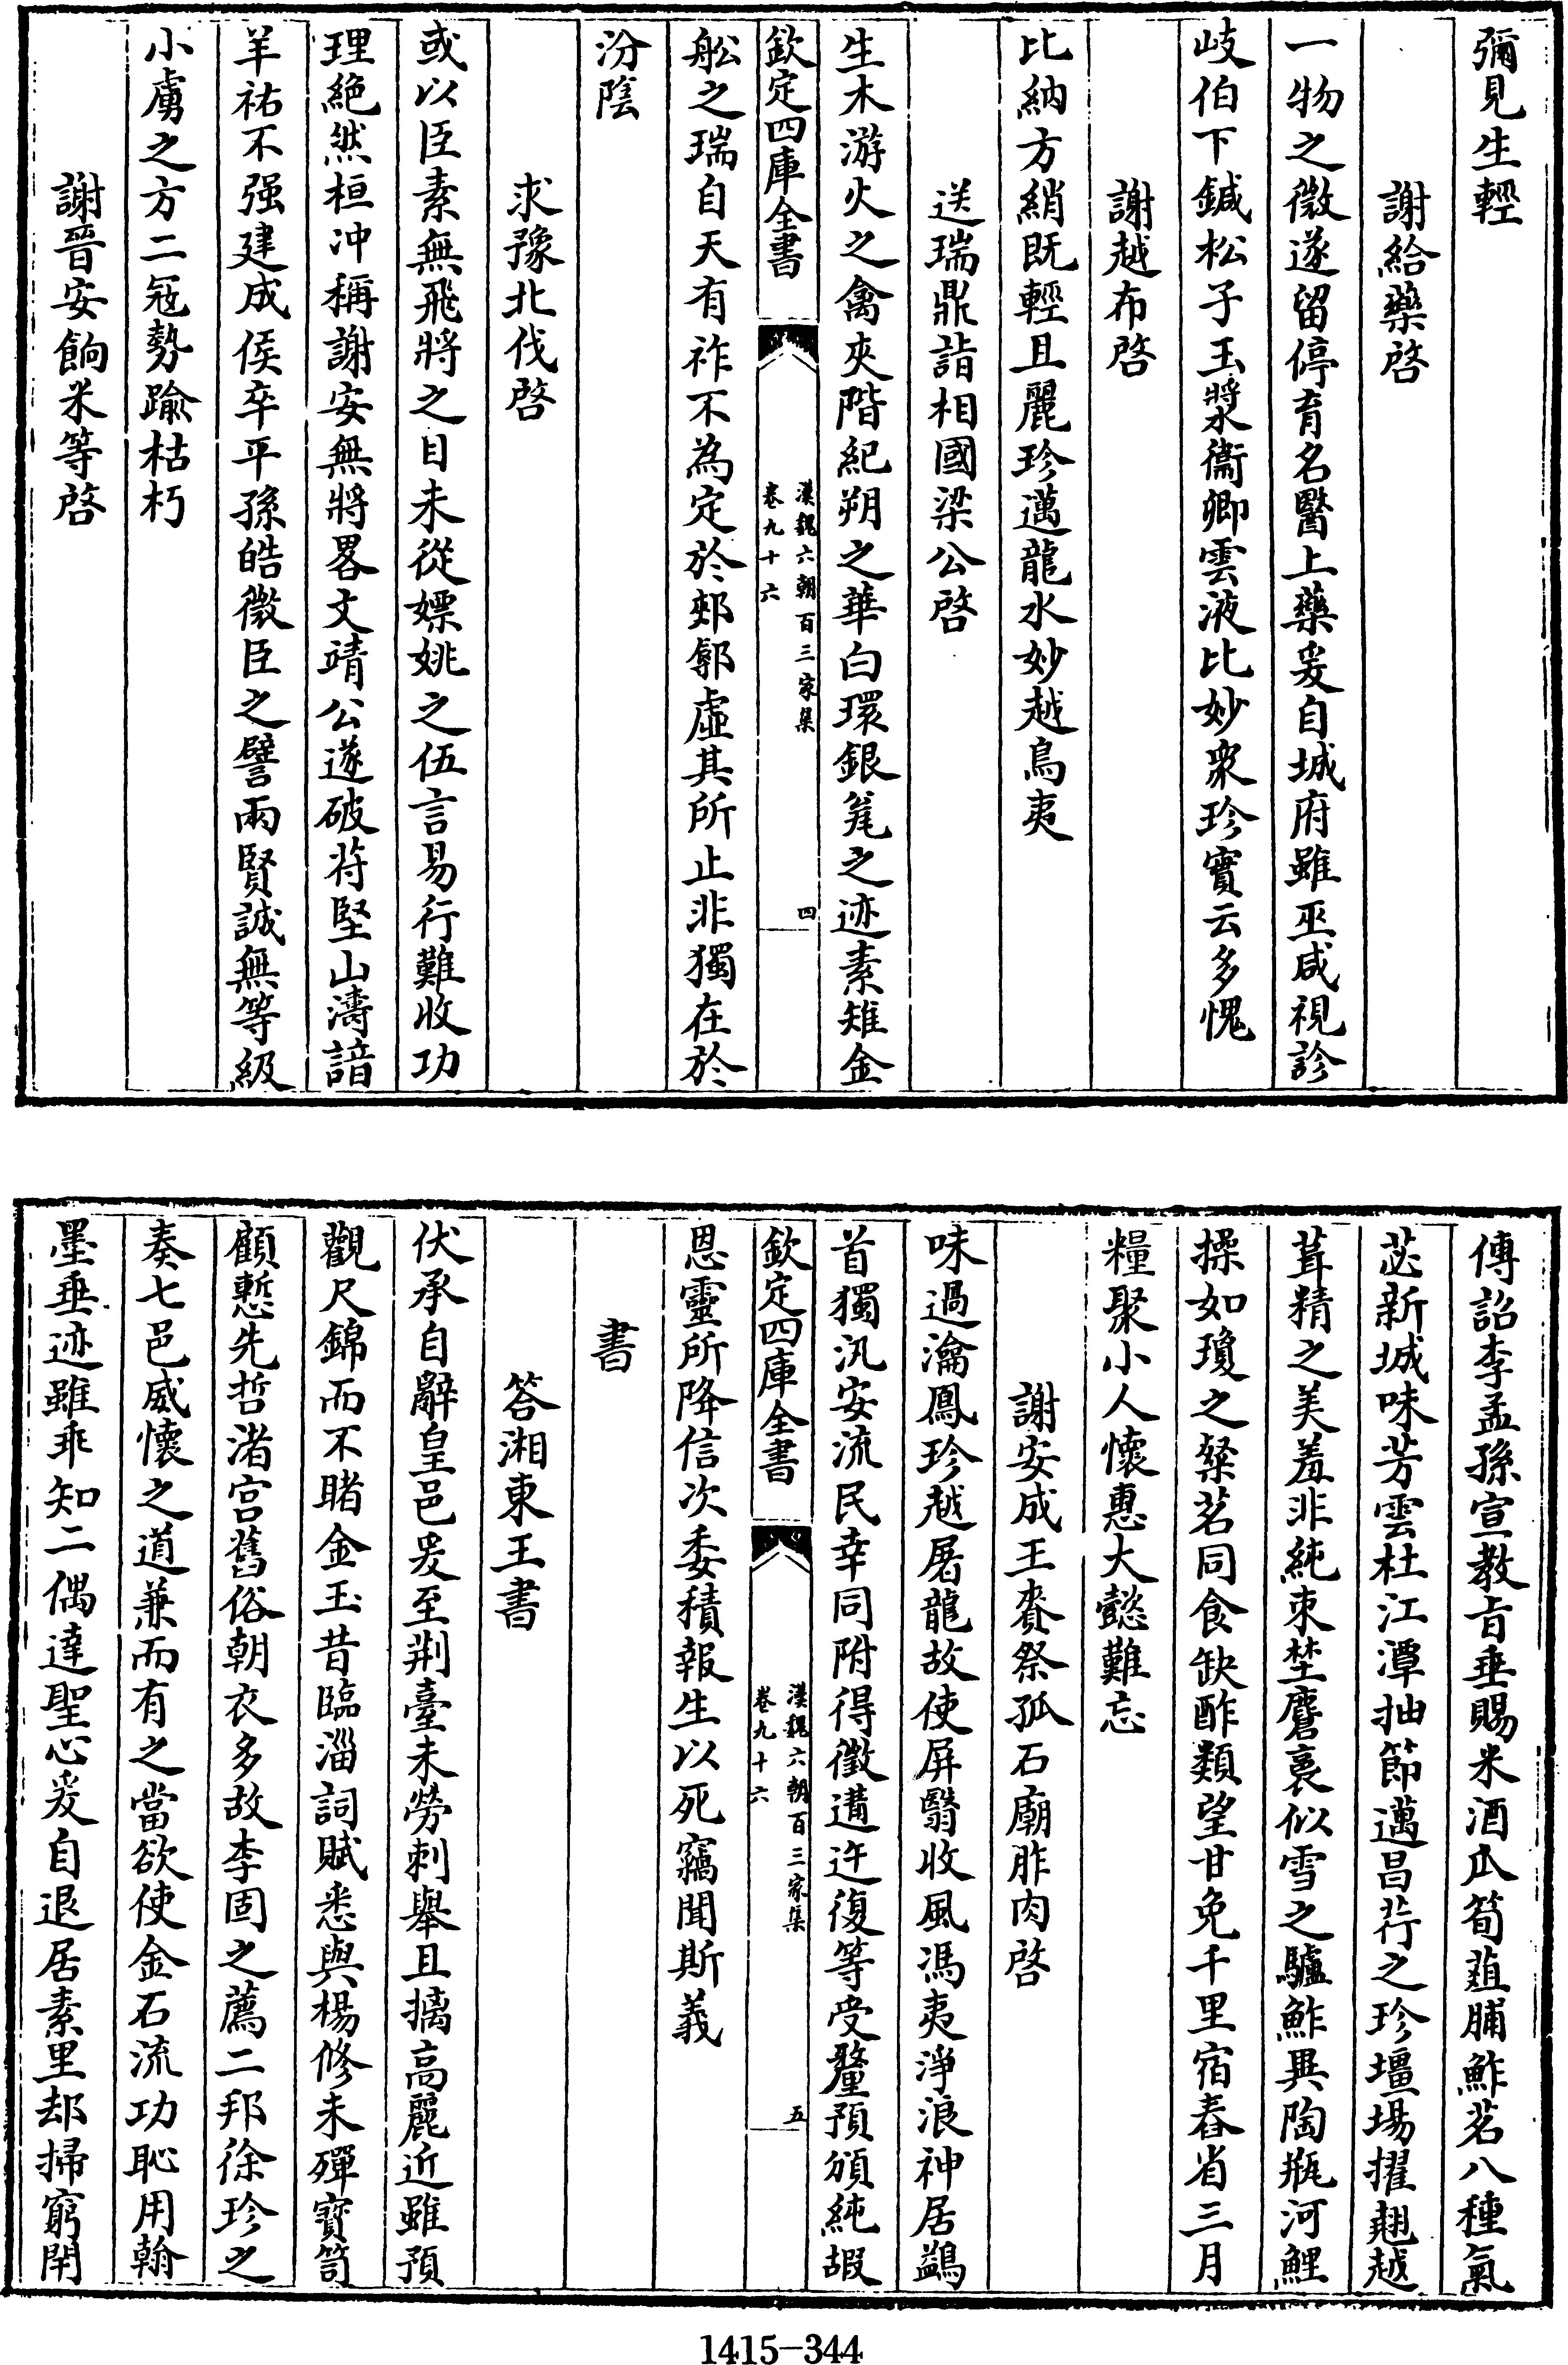 彌見生輕
謝給藥啓
一物之微遂留停育名醫上藥爰自城府雖巫咸視診
岐伯下鍼松子玉漿衞卿雲液比妙衆珍實云多愧
謝越布啓
比納方綃既輕且麗珍邁龍水妙越鳥夷
送瑞鼎詣相國梁公啓
生木游火之禽夾階紀朔之華白環銀瓮之迹素雉金
欽定四庫全書
漢魏六朝百三家集
卷九十六
四
舩之瑞自天有祚不為定於郟鄏虛其所止非獨在於
汾陰
求豫北伐啓
或以臣素無飛將之目未從嫖姚之伍言易行難收功
理絶然桓冲稱謝安無將畧文靖公遂破苻堅山濤諳
羊祜不强建成侯卒平孫皓微臣之譬兩賢誠無等級
小虜之方二冦勢踰枯朽
謝晉安餉米等啓
傳詔李孟孫宣教旨垂賜米酒瓜筍葅脯鮓茗八種氣
苾新城味芳雲杜江潭抽節邁昌荇之珍壃場擢翹越
葺精之美羞非純束埜麏裛似雪之驢鮓異陶瓶河鯉
操如瓊之粲茗同食缺酢類望甘免千里宿舂省三月
糧聚小人懷惠大懿難忘
謝安成王賚祭孤石廟胙肉啓
味過瀹鳳珍越屠龍故使屏翳收風馮夷淨浪神居鷁
首獨汎安流民幸同附得徼遘迕復等受釐預頒純嘏
欽定四庫全書
漢魏六朝百三家集
卷九十六
五
恩靈所降信次委積報生以死竊聞斯義
書
答湘東王書
伏承自辭皇邑爰至荆臺未勞刺舉且摛高麗近雖預
觀尺錦而不睹金玉昔臨淄詞賦悉與楊修未殫寶笥
顧慙先哲渚宫舊俗朝衣多故李固之薦二邦徐珍之
奏七邑威懷之道兼而有之當欲使金石流功恥用翰
墨垂迹雖乖知二偶達聖心爰自退居素里却掃窮閈
1415-344